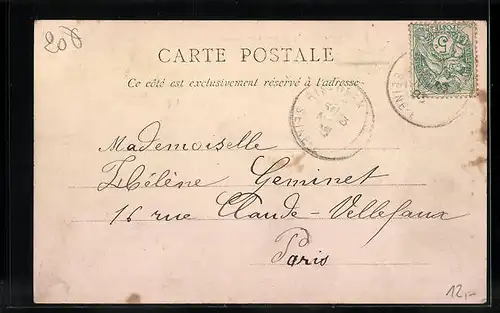 208
CARTE POSTALE
Ce côté est exclusivement réservé à l'adresse
5
SEINE
Mademoiselle
Hélène Geminet
16 rue Claude-Vellefaux
Paris
12,-